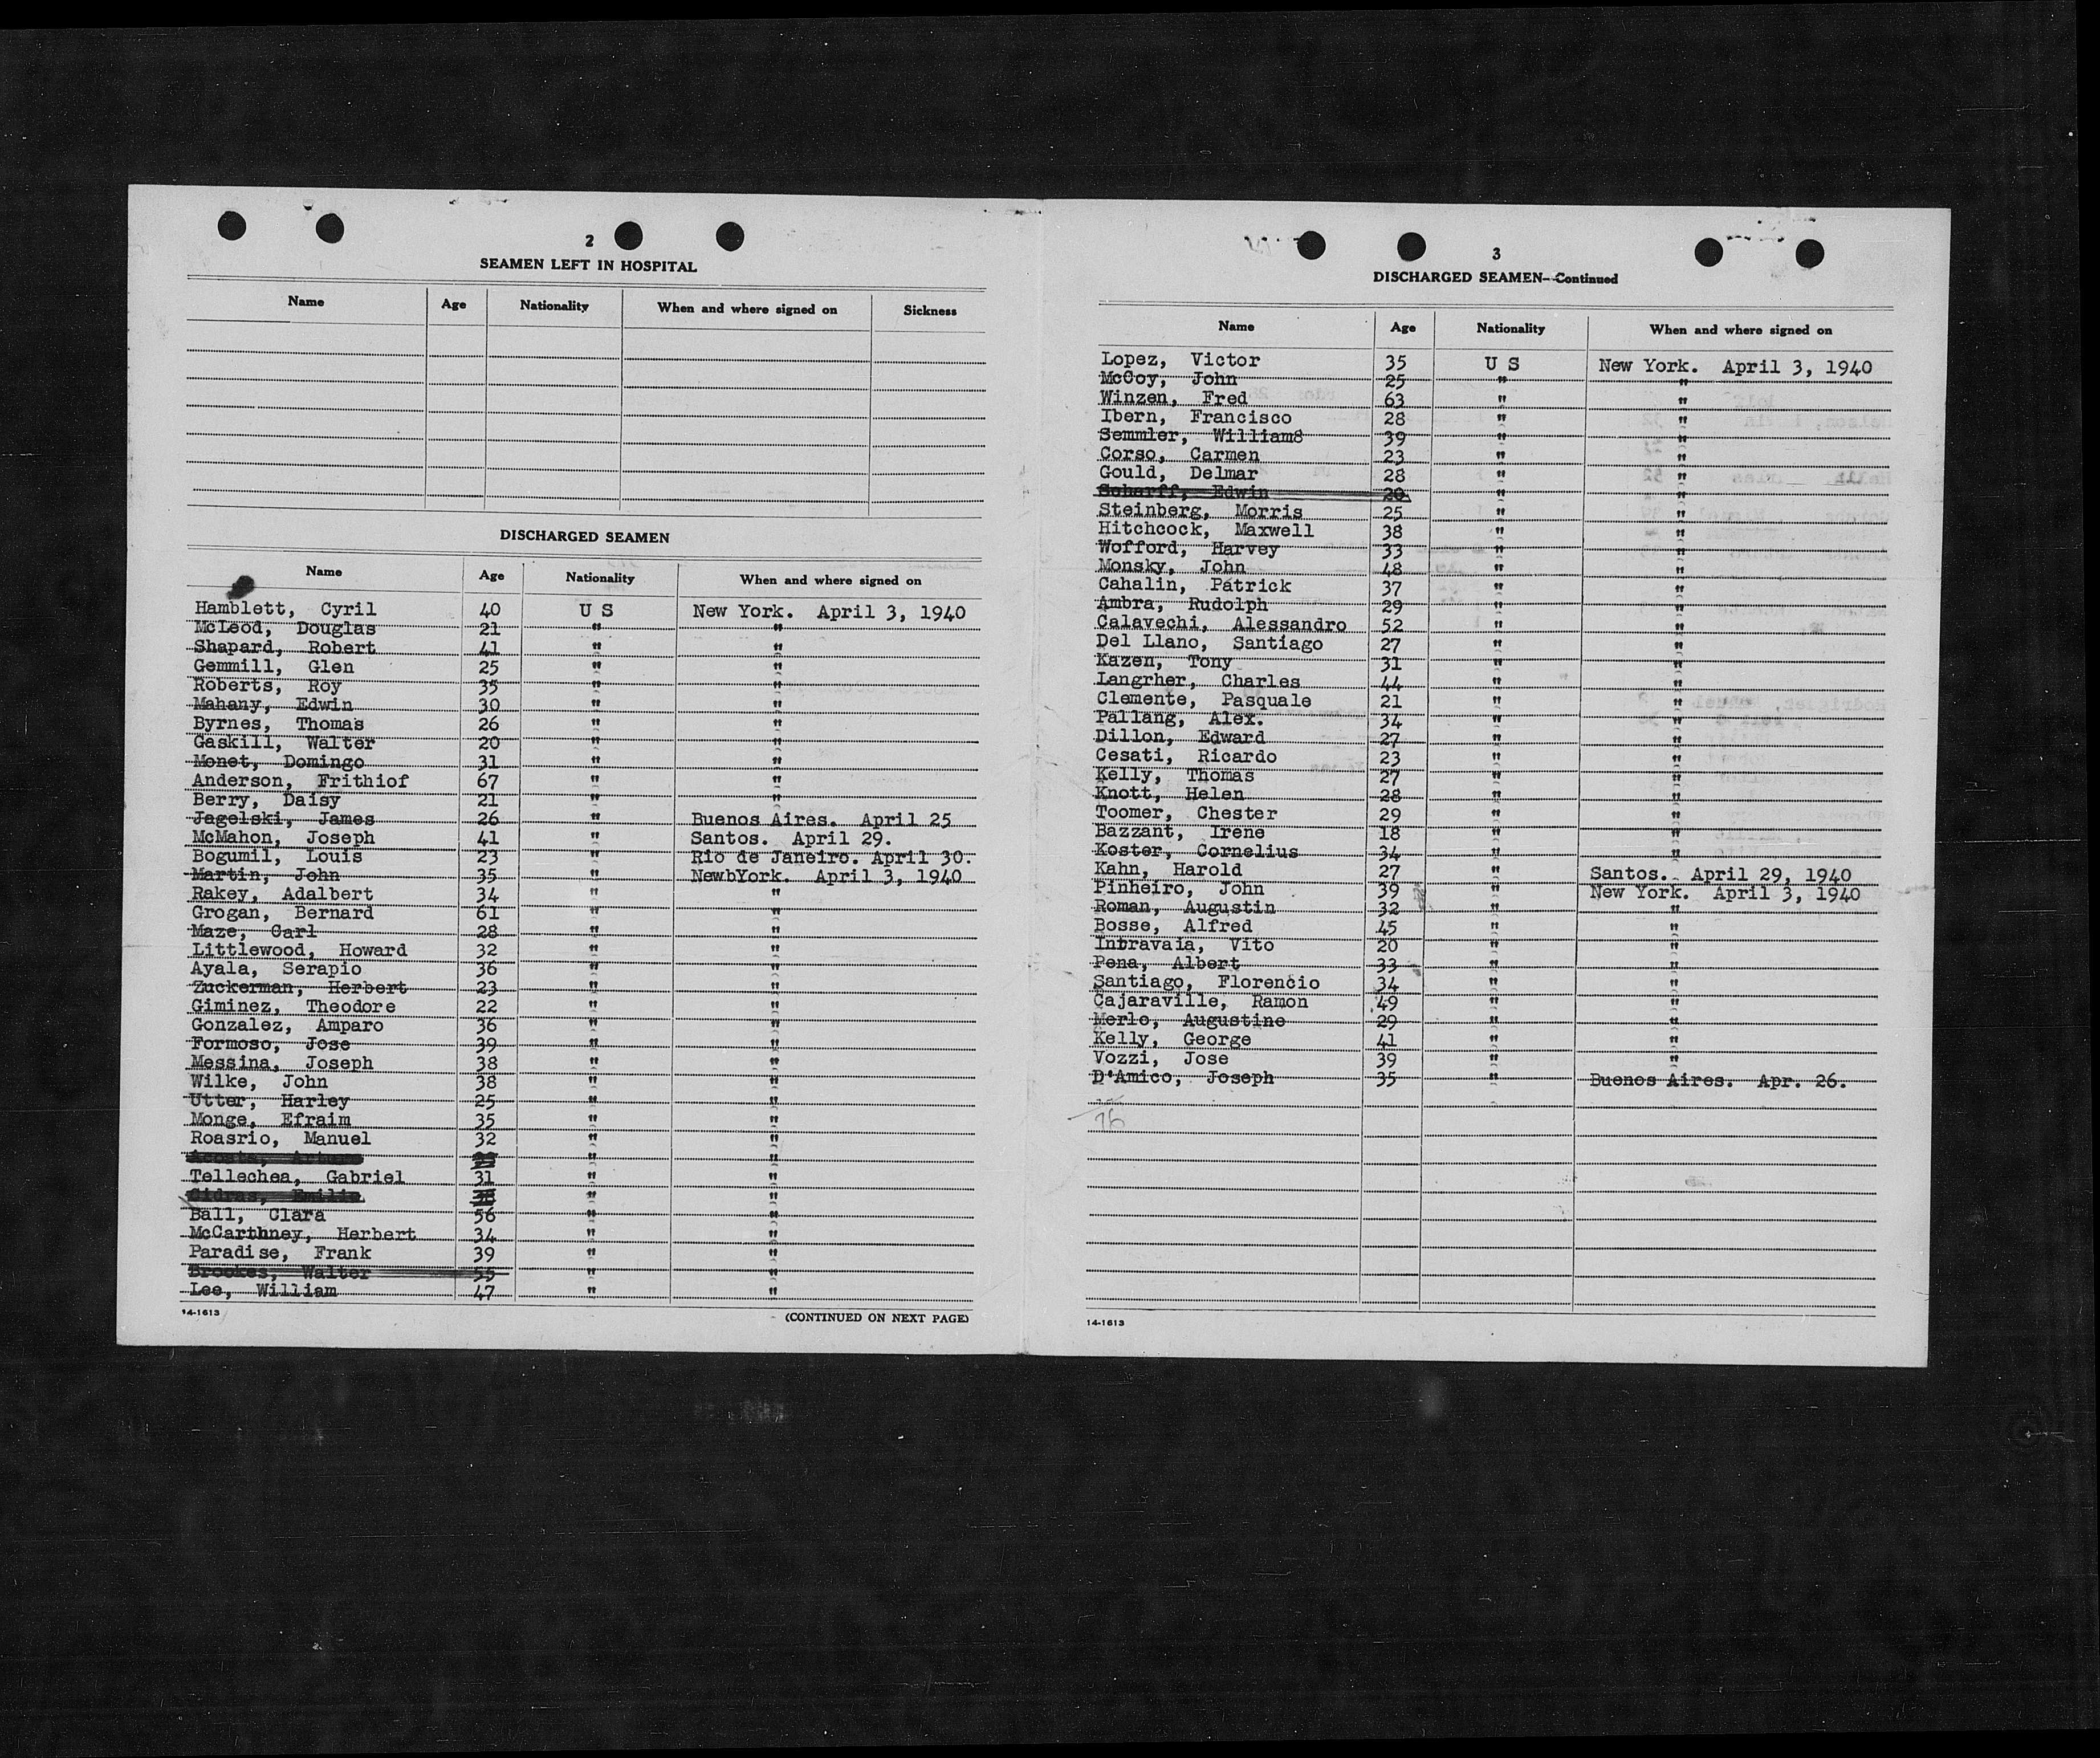 2
SEAMEN LEFT IN HOSPITAL
Name Age Nationality When and where signed on Sickness
DISCHARGED SEAMEN
Name Age Nationality When and where signed on
Hamblett, Cyril 40 U S New York. April 3, 1940
McLeod, Douglas 21 " "
Shapard, Robert 41 " "
Gemmill, Glen 25 " "
Roberts, Roy 35 " "
Mahany, Edwin 30 " "
Byrnes, Thomas 26 " "
Gaskill, Walter 20 " "
Monet, Domingo 31 " "
Anderson, Frithiof 67 " "
Berry, Daisy 21 " "
Jagelski, James 26 " Buenos Aires. April 25
McMahon, Joseph 41 " Santos. April 29.
Bogumil, Louis 23 " Rio de Janeiro. April 30.
Martin, John 35 " NewbYork. April 3, 1940
Rakey, Adalbert 34 " "
Grogan, Bernard 61 " "
Maze, Carl 28 " "
Littlewood, Howard 32 " "
Ayala, Serapio 36 " "
Zuckerman, Herbert 23 " "
Giminez, Theodore 22 " "
Gonzalez, Amparo 36 " "
Formoso, Jose 39 " "
Messina, Joseph 38 " "
Wilke, John 38 " "
Utter, Harley 25 " "
Monge, Efraim 35 " "
Roasrio, Manuel 32 " "
" "
Tellechea, Gabriel 31 " "
" "
Ball, Clara 56 " "
McCarthney, Herbert 34 " "
Paradise, Frank 39 " "
Brookes, Walter 55 " "
Lee, William 47 " "
14-1613 (CONTINUED ON NEXT PAGE)
3
DISCHARGED SEAMEN—Continued
Name Age Nationality When and where signed on
Lopez, Victor 35 U S New York. April 3, 1940
McCoy, John 25 " "
Winzen, Fred 63 " "
Ibern, Francisco 28 " "
Semmler, William8 39 " "
Corso, Carmen 23 " "
Gould, Delmar 28 " "
Scharff, Edwin 20 " "
Steinberg, Morris 25 " "
Hitchcock, Maxwell 38 " "
Wofford, Harvey 33 " "
Monsky, John 48 " "
Cahalin, Patrick 37 " "
Ambra, Rudolph 29 " "
Calavechi, Alessandro 52 " "
Del Llano, Santiago 27 " "
Kazen, Tony 31 " "
Langrher, Charles 44 " "
Clemente, Pasquale 21 " "
Pallang, Alex. 34 " "
Dillon, Edward 27 " "
Cesati, Ricardo 23 " "
Kelly, Thomas 27 " "
Knott, Helen 28 " "
Toomer, Chester 29 " "
Bazzant, Irene 18 " "
Koster, Cornelius 34 " "
Kahn, Harold 27 " Santos. April 29, 1940
Pinheiro, John 39 " New York. April 3, 1940
Roman, Augustin 32 " "
Bosse, Alfred 45 " "
Intravaia, Vito 20 " "
Pena, Albert 33 " "
Santiago, Florencio 34 " "
Cajaraville, Ramon 49 " "
Merlo, Augustine 29 " "
Kelly, George 41 " "
Vozzi, Jose 39 " "
D'Amico, Joseph 35 " Buenos Aires. Apr. 26.
76
14-1613